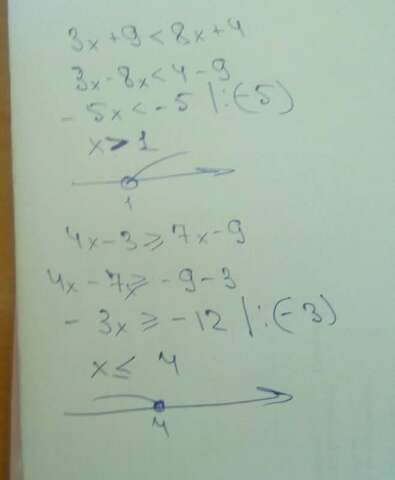 3x+9<8x+4
3x-8x<4-9
-5x<-5 |:(-5)
x>1
1
4x-3≥7x-9
4x-7x≥-9-3
-3x≥-12 |:(-3)
x≤4
4